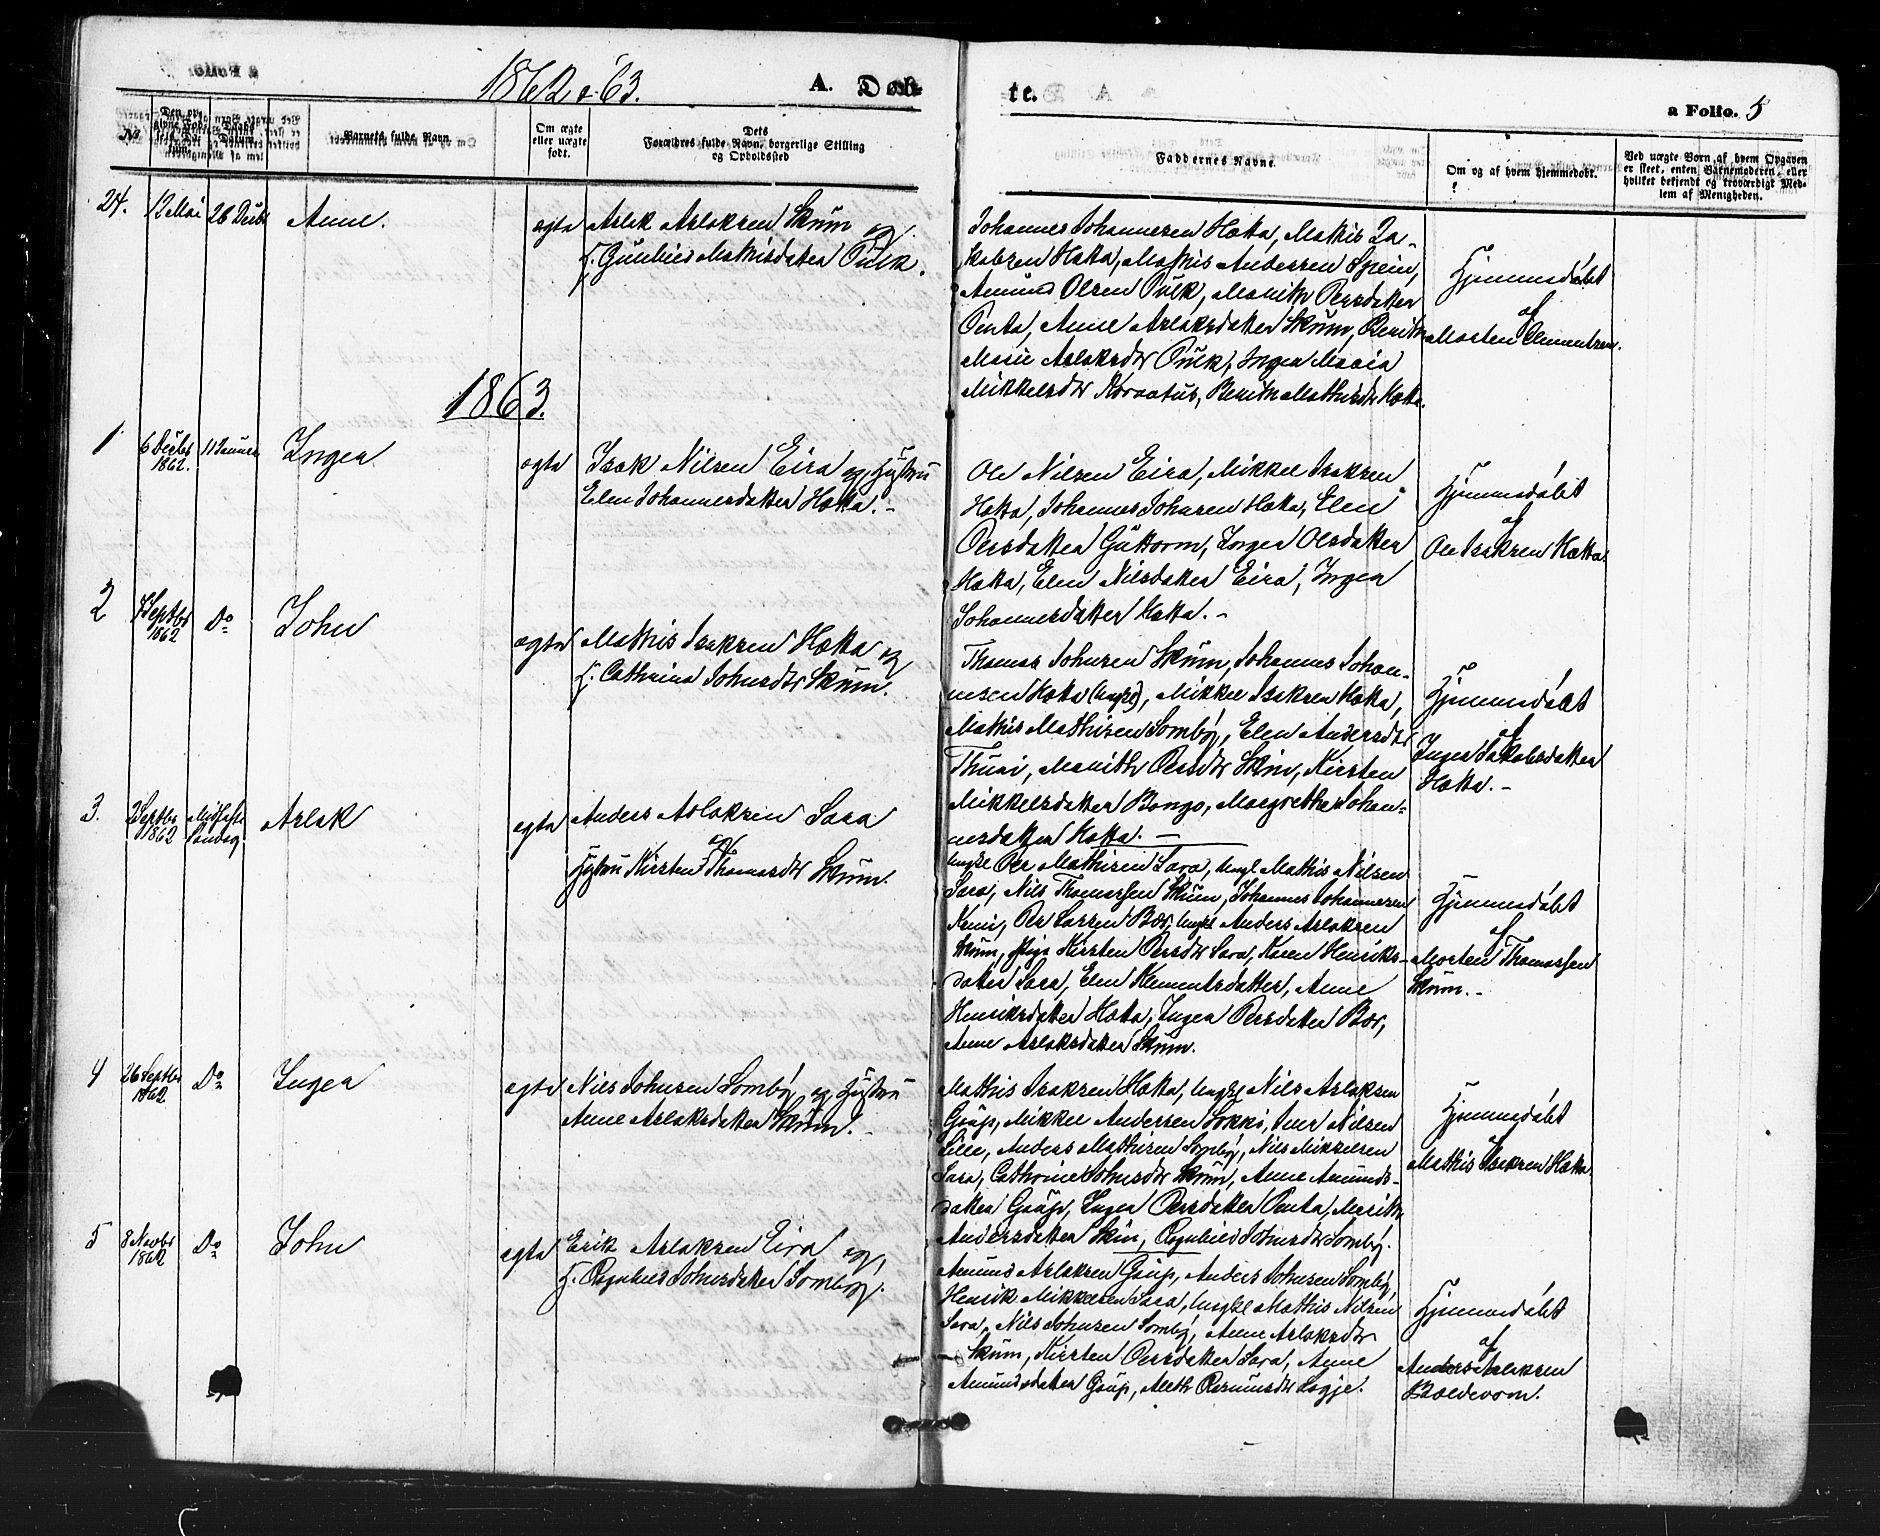 1862 & 63.
A. Døb-
te.
a Folio. 5
No.
Den op-
givne Fød-
sels Da-
tum.
Daabs
Datum
Barnets fulde Navn.
Om ægte
eller uægte
født.
Dets
Forældres fulde Navn, borgerlige Stilling
og Opholdssted
Faddernes Navne.
Om og af hvem hjemmedøbt.
Ved uægte Børn af hvem Opgaven
er skeet, enten Barnemoderen, eller
hvilket bekjendt og troværdigt Med-
lem af Menigheden.
24.
12 Mai
26 Decbr
Anne.
ægte
Aslak Aslaksen Skum og
H. Gunhild Mathisdatter Pulk.
Johannes Johannesen Hætta, Mathis Ja-
kobsen Hætta, Mathis Andersen Spein,
Amund Olsen Pulk, Marith Persdatter
Penta, Anne Aslaksdatter Skum, Berith
Marie Aslaksdtr Pulk, Inger Maria
Mikkelsdtr Koraatus, Berith Mathisdtr Hætta.
Hjemmedøbt
af
Morten Clementsen.
1863.
1
6 Decbr
1862.
11 Januar
Inger
ægte
Isak Nilsen Eira og Hustru
Elen Johannesdatter Hætta. -
Ole Nilsen Eira, Mikkel Isaksen
Hætta, Johannes Johnsen Hætta, Elen
Persdatter Guttorm, Inger Olsdatter
Hætta, Elen Nilsdatter Eira, Inger
Johannesdatter Hætta. -
Hjemmedøbt
af
Ole Isaksen Hætta.
2
Septbr
1862
Do
John
ægte
Mathis Isaksen Hætta og
H. Cathrina Johnsdtr Skum.
Thomas Johnsen Skum, Johannes Johan-
nesen Hætta (Ungk), Mikkel Isaksen Hætta,
Mathis Mathisen Somby, Elen Andersdtr
Thuri, Marith Persdtr Skum, Kirsten
Mikkelsdatter Bongo, Margrethe Johan-
nesdatter Hætta. -
Hjemmedøbt
af
Inger Jakobsdatter
Hætta. -
3.
Septbr
1862
Søndag.
Aslak
ægte
Anders Aslaksen Sara
og
Hustru Kirsten Thomasdtr Skum.
Ungkl Per Mathisen Sara, Ungkl Mathis Nilsen
Sara, Nils Thomassen Skum, Johannes Johannesen
Kemi, Per Larsen Bær, Ungkl Anders Aslaksen
Skum, Pige Kirsten Persdtr Sara, Karen Henriks-
datter Sara, Elen Klementsdatter, Anne
Henriksdatter Hætta, Inger Persdatter Bær,
Anne Aslaksdatter Skum.
Hjemmedøbt
af
Morten Thomassen
Skum. -
4
26 Septbr
1862
Do
Inger
ægte
Nils Johnsen Somby og Hustru
Anne Aslaksdatter Skum. -
Mathis Isaksen Hætta, Ungkl Nils Aslaksen
Gaup, Mikkel Andersen Sokki, Iver Nilsen
Lille, Anders Mathisen Somby, Nils Mikkelsen
Sara, Cathrine Johnsdtr Skum, Anne Amunds-
datter Gaup, Inger Persdatter Penta, Marith
Andersdatter Skum, Ragnhild Johnsdtr Somby.
Hjemmedøbt
af
Mathis Isaksen Hætta.
5
8 Novbr
1862
Do
John
ægte
Erik Aslaksen Eira og
H. Ragnhild Johnsdatter Somby.
Amund Aslaksen Gaup, Anders Johnsen Somby,
Henrik Mikkelsen Sara, Ungkl Mathis Nilsen
Sara, Nils Johnsen Somby, Anne Aslaksdtr
Skum, Kirsten Persdatter Sara, Anne
Amundsdatter Gaup, Aleth Rasmusdtr Logje.
Hjemmedøbt
af
Anders Aslaksen
Bældevorn.